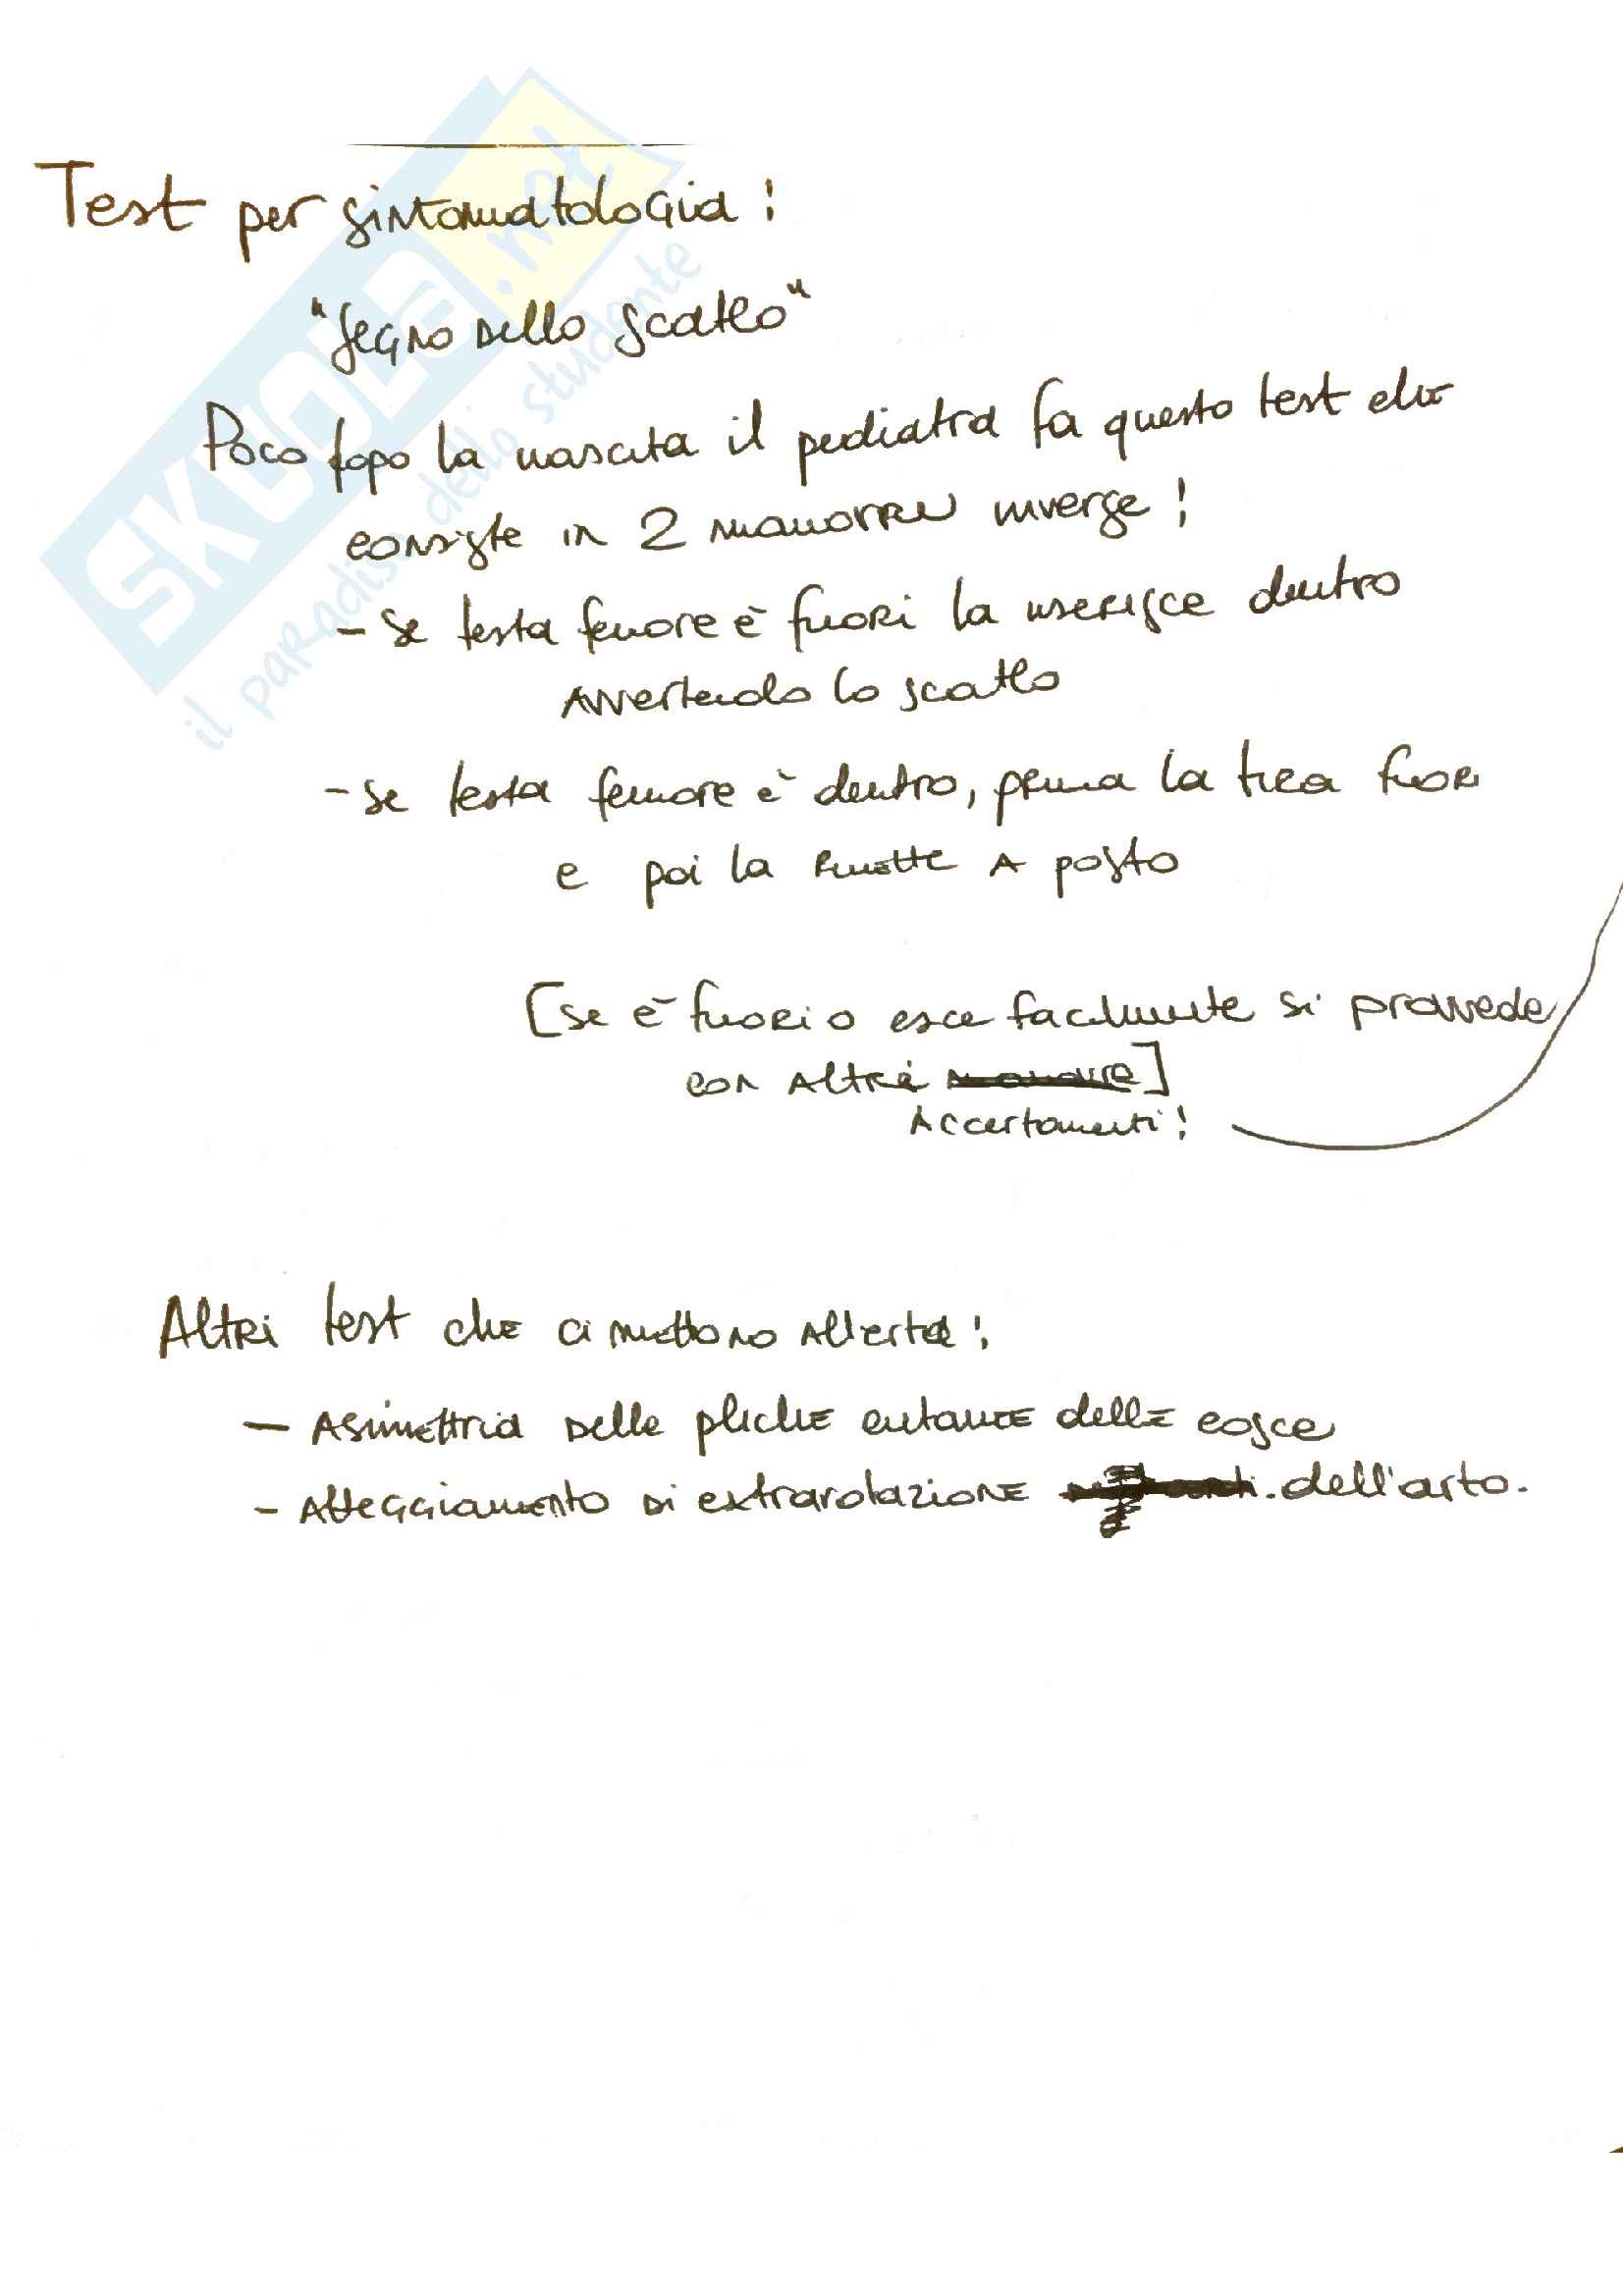 Test per sintomatologia:
"Segno dello scatto"
Poco dopo la nascita il pediatra fa questo test che
consiste in 2 manovre inverse:
- Se testa femore è fuori la inserisce dentro
avvertendo lo scatto
- Se testa femore è dentro, prima la tira fuori
e poi la rimette a posto
[se è fuori o esce facilmente si provvede
con altri manovre]
Accertamenti!
Altri test che ci mettono allerta:
- Asimmetria delle pliche cutanee delle cosce
- Atteggiamento di extrarotazione dell'arto.
SKUOLA.net
il paradiso dello studente